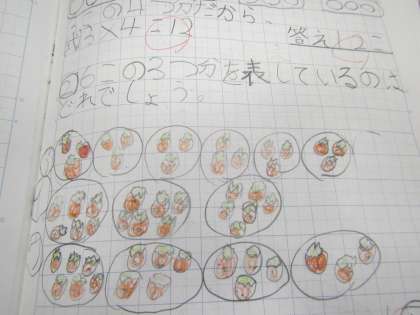 の4つ分だから、
3×4=12
答え12こ
6この3つ分を表しているのは
どれでしょう。